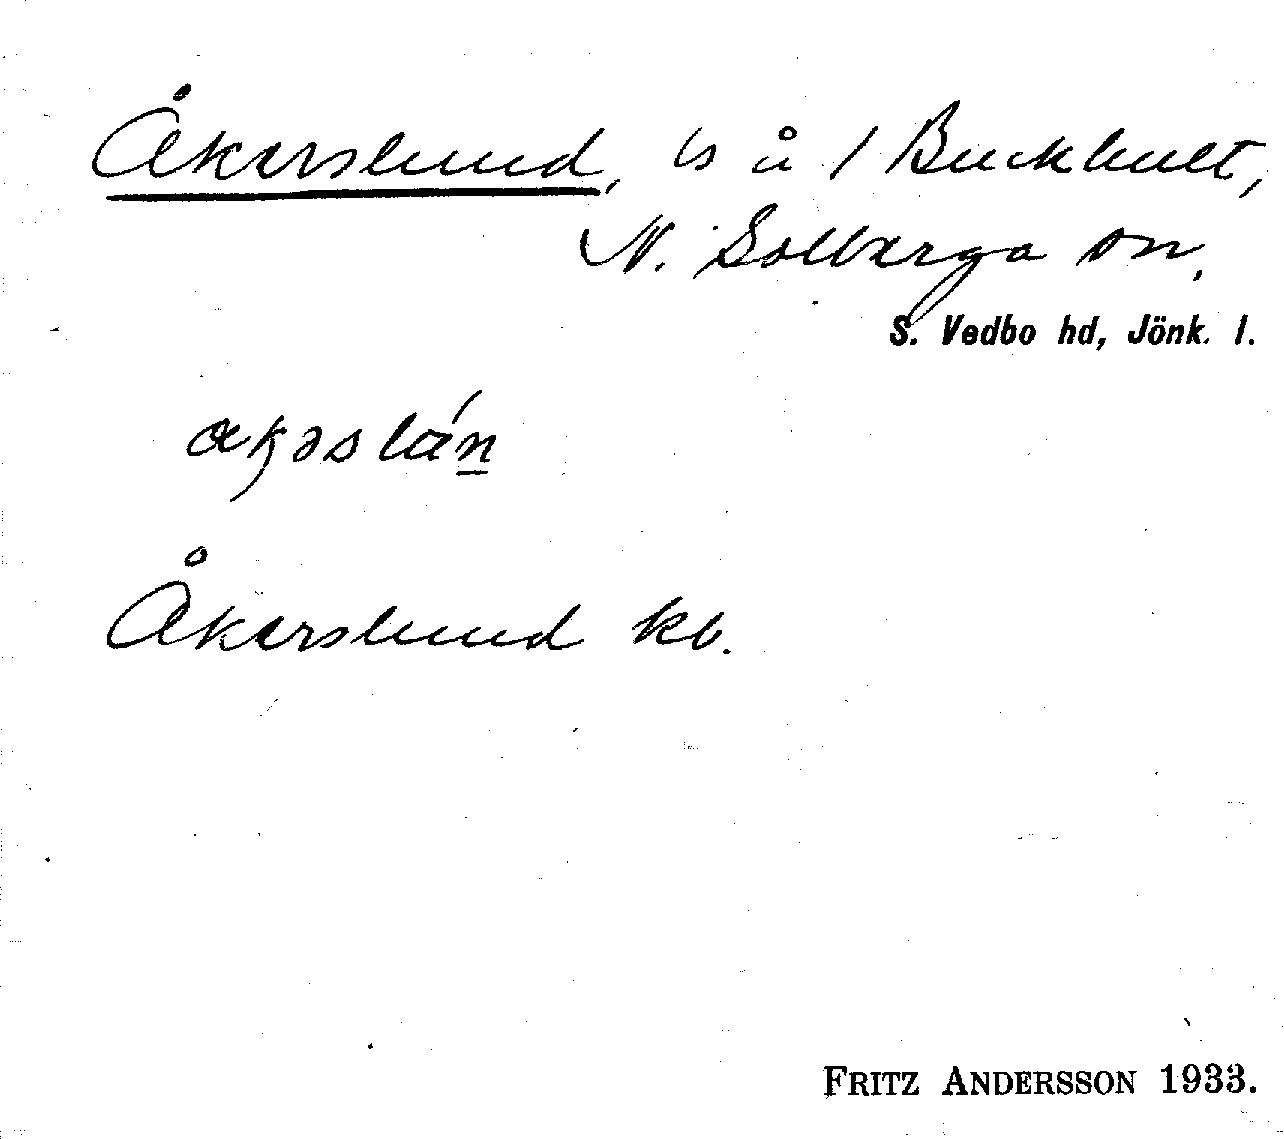 Åkerslund, ls å 1 Buckhult,
N. Solberga sn,
S. Vedbo hd, Jönk. l.
Åkerslund kb.
FRITZ ANDERSSON 1933.